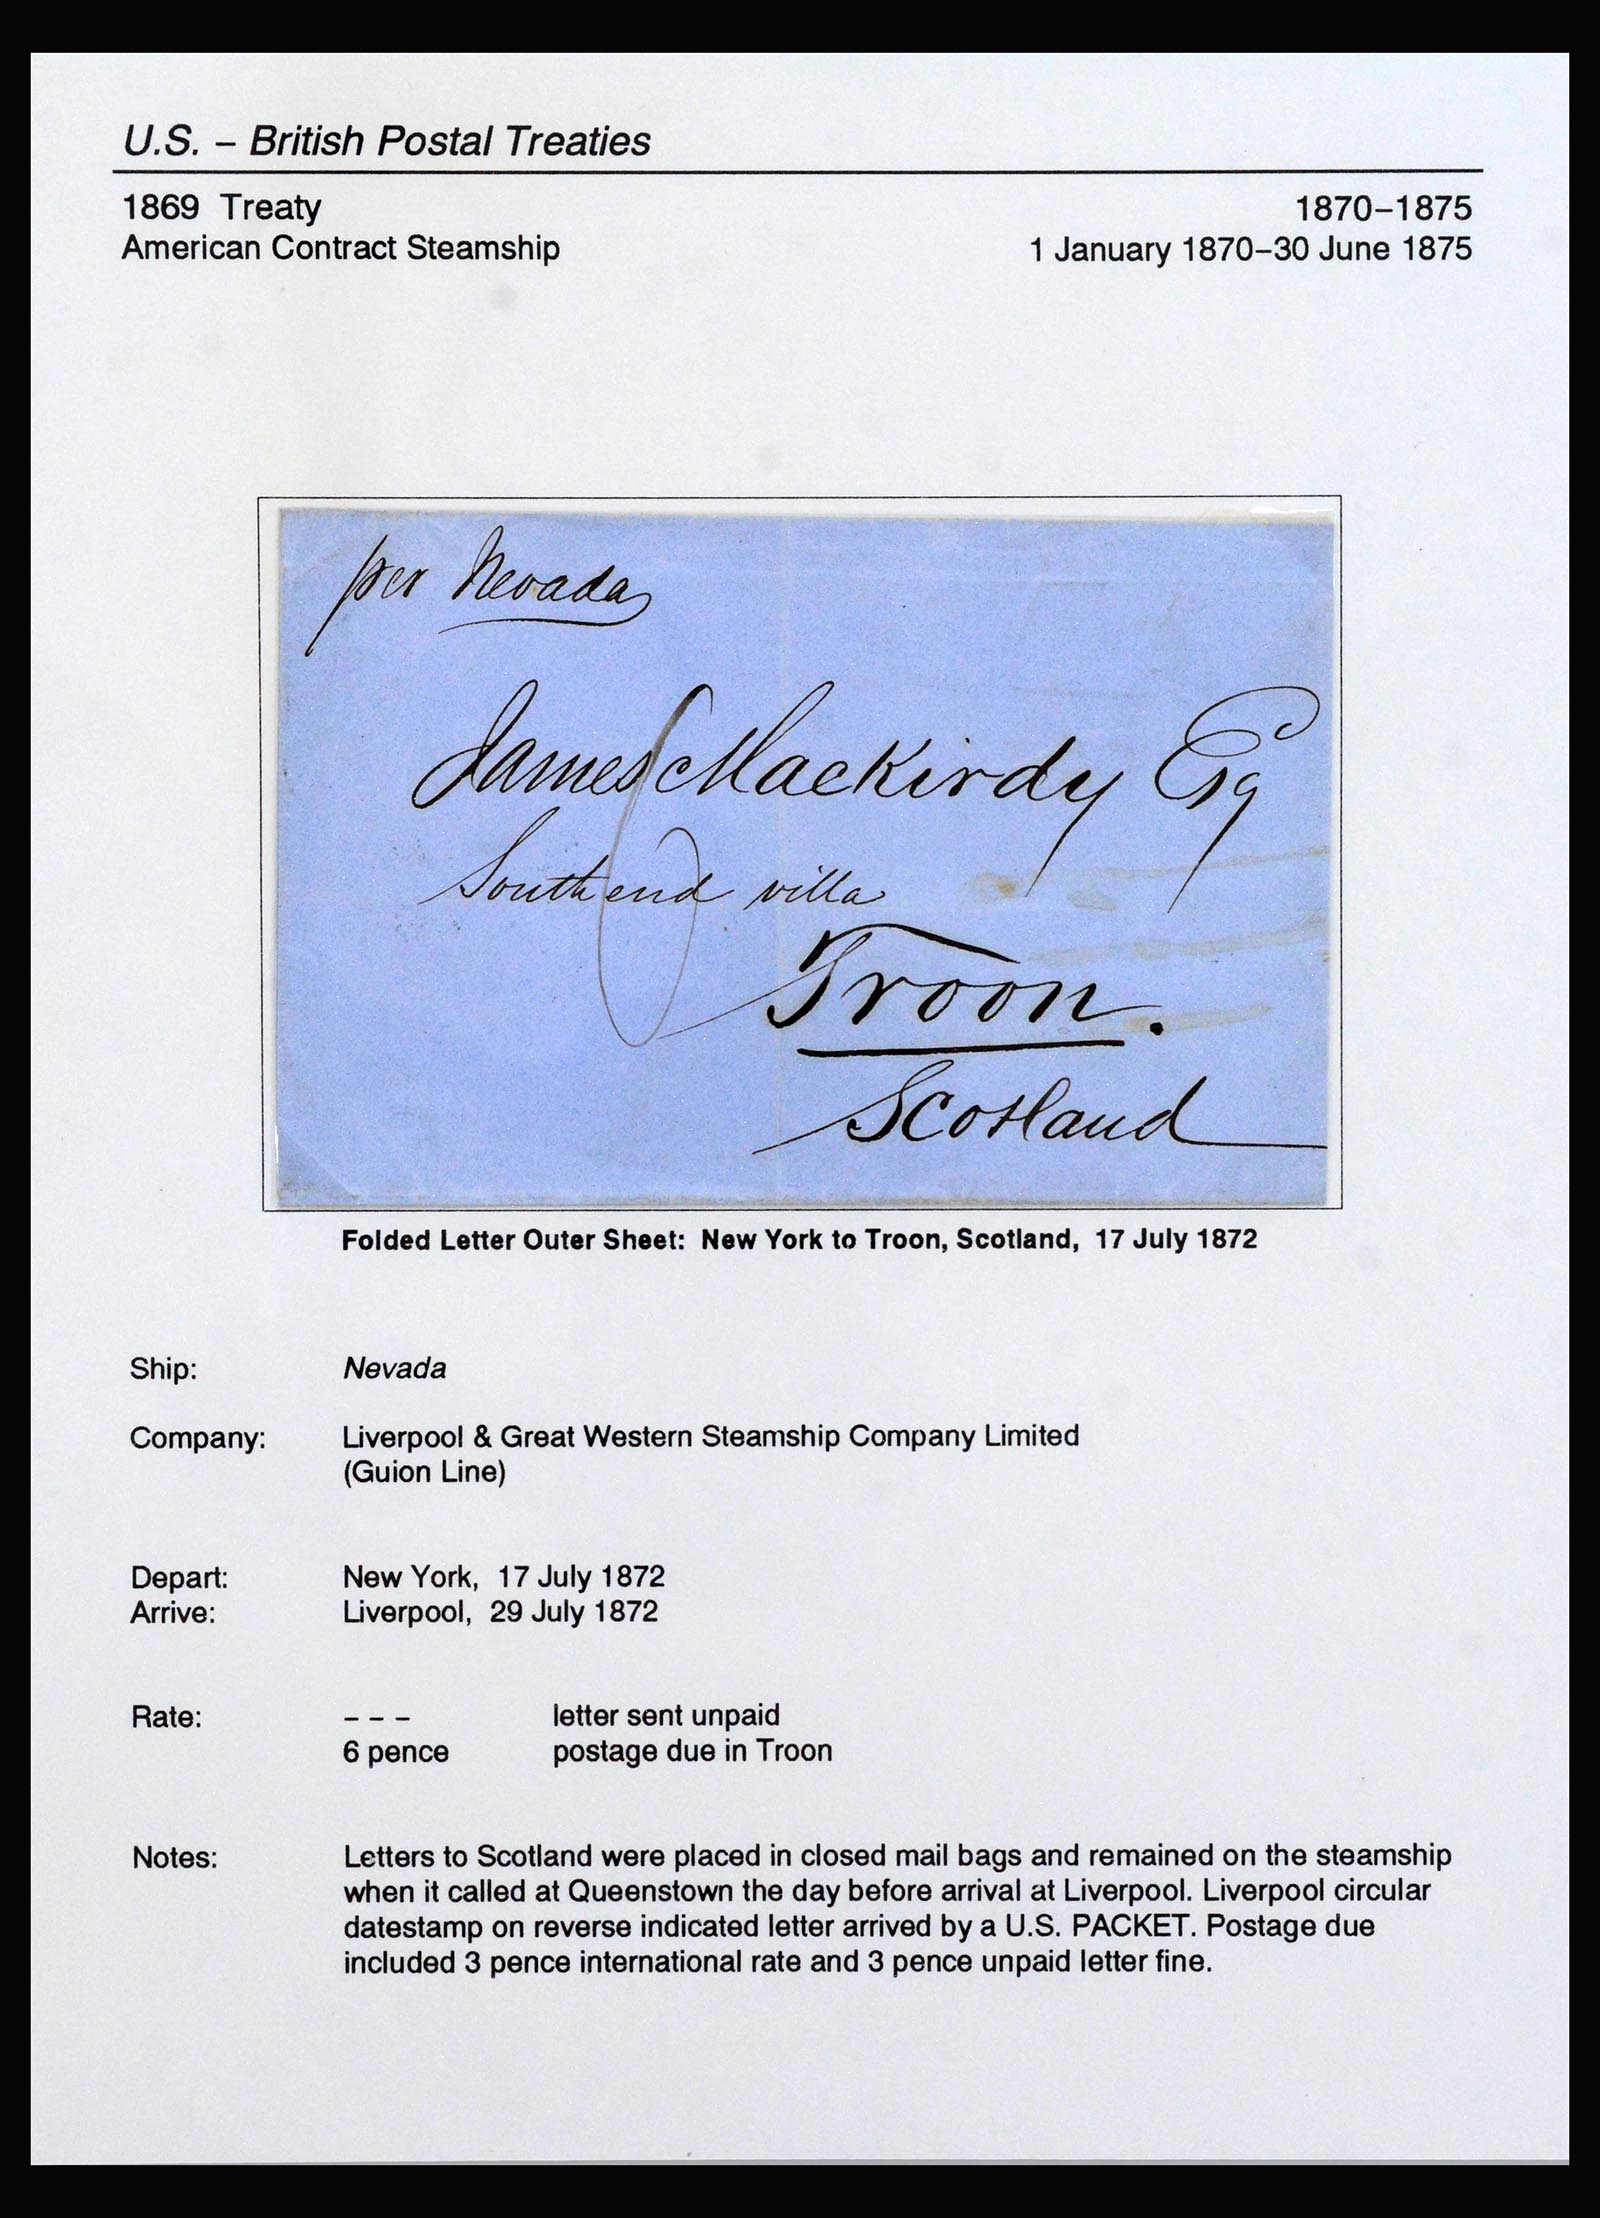 U.S. – British Postal Treaties
1869 Treaty 1870–1875
American Contract Steamship 1 January 1870–30 June 1875
per Nevada
James Mackirdy Esq
6
Southend villa
Troon.
Scotland
Folded Letter Outer Sheet: New York to Troon, Scotland, 17 July 1872
Ship: Nevada
Company: Liverpool & Great Western Steamship Company Limited
(Guion Line)
Depart: New York, 17 July 1872
Arrive: Liverpool, 29 July 1872
Rate: – – – letter sent unpaid
6 pence postage due in Troon
Notes: Letters to Scotland were placed in closed mail bags and remained on the steamship
when it called at Queenstown the day before arrival at Liverpool. Liverpool circular
datestamp on reverse indicated letter arrived by a U.S. PACKET. Postage due
included 3 pence international rate and 3 pence unpaid letter fine.